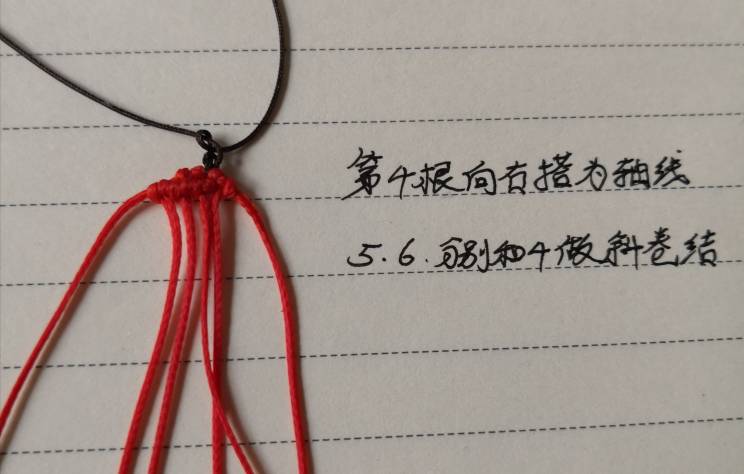 第4根向右搭为轴线
5.6.分别和4做斜卷结